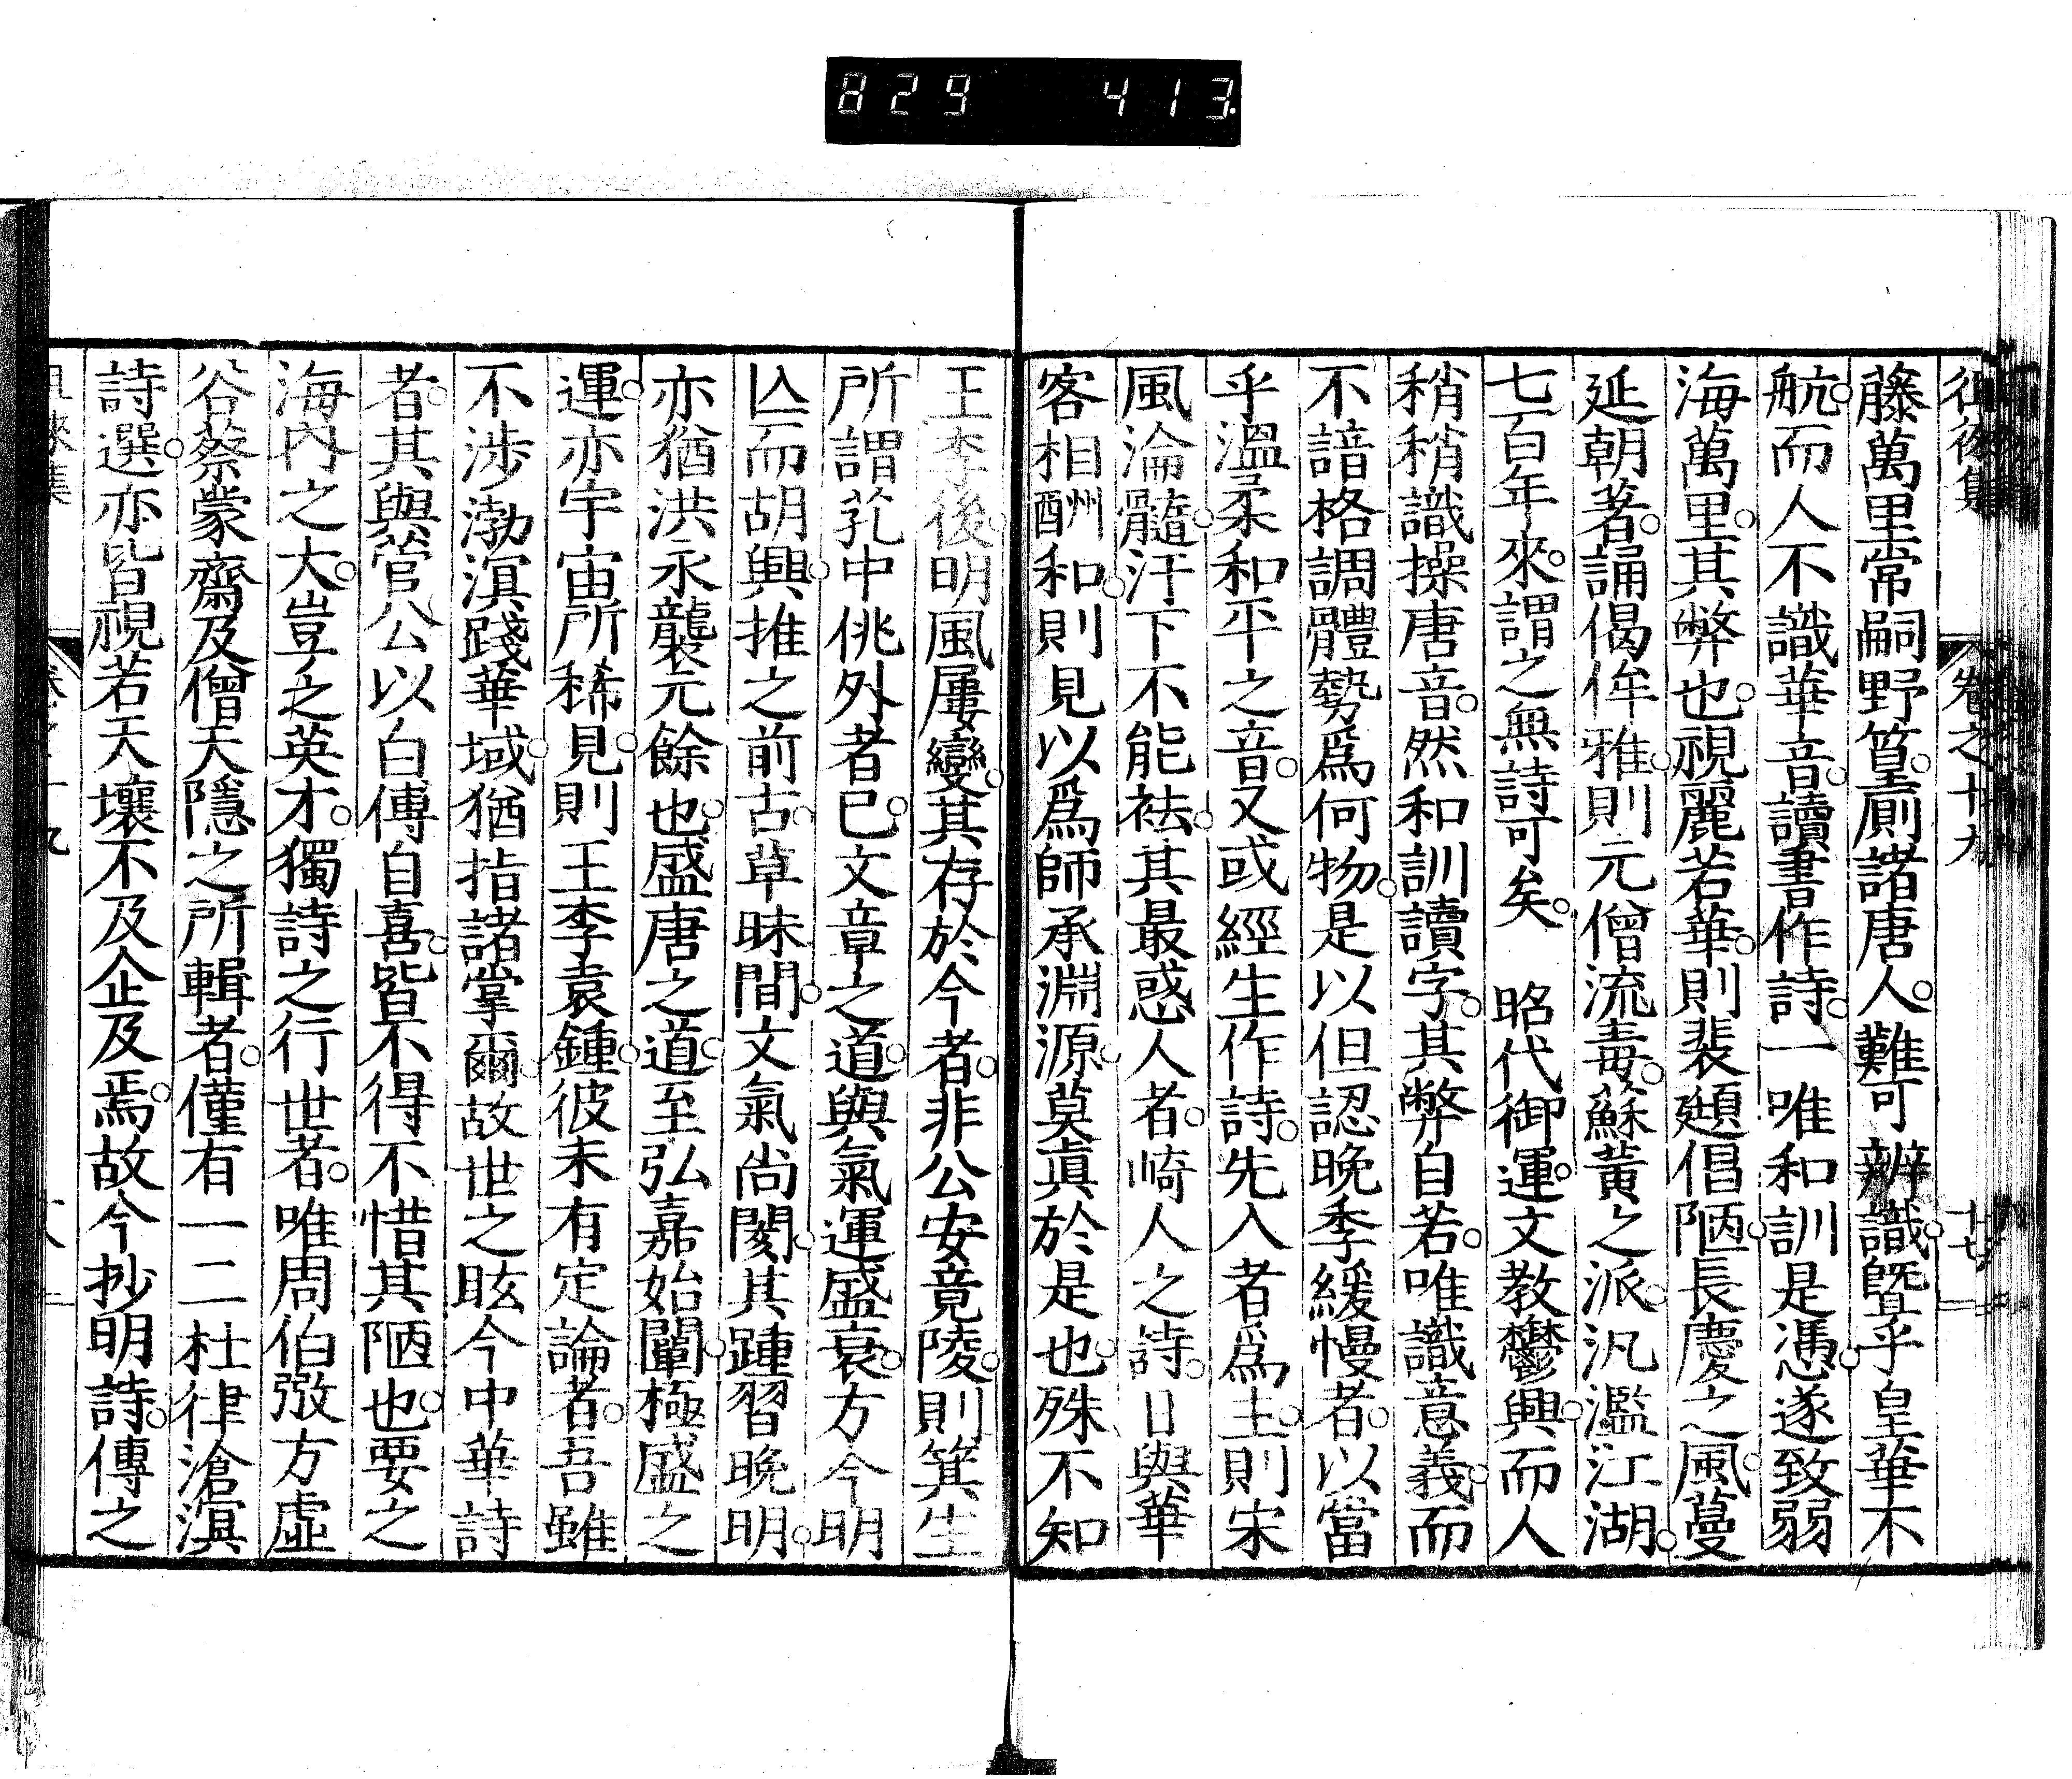 829 413
徂徠集 卷之十九 十七
藤萬里常嗣野篁廁諸唐人難可辨識曁乎皇華不
航而人不識華音讀書作詩一唯和訓是憑遂致弱
海萬里其弊也視麗若華則裴頲倡陋長慶之風蔓
延朝著誦偈侔雅則元僧流毒蘇黃之派汎濫江湖
七百年來謂之無詩可矣 昭代御運文教鬱興而人
稍稍識操唐音然和訓讀字其弊自若唯識意義而
不諳格調體勢爲何物是以但認晩季緩慢者以當
乎溫柔和平之音又或經生作詩先入者爲主則宋
風淪髓汗下不能袪其最惑人者崎人之詩日與華
客相酬和則見以爲師承淵源莫眞於是也殊不知
王李後明風屢變其存於今者非公安竟陵則箕生
所謂乳中佻外者已文章之道與氣運盛衰方今明
亾而胡興推之前古草昧間文氣尚閡其踵習晩明
亦猶洪永襲元餘也盛唐之道至弘嘉始闡極盛之
運亦宇宙所稀見則王李袁鍾彼未有定論者吾雖
不涉渤溟踐華域猶指諸掌爾故世之眩今中華詩
者其與管公以白傅自喜皆不得不惜其陋也要之
海內之大豈乏英才獨詩之行世者唯周伯弜方虛
谷蔡蒙齋及僧天隱之所輯者僅有一二杜律滄溟
詩選亦皆視若天壤不及企及焉故今抄明詩傳之